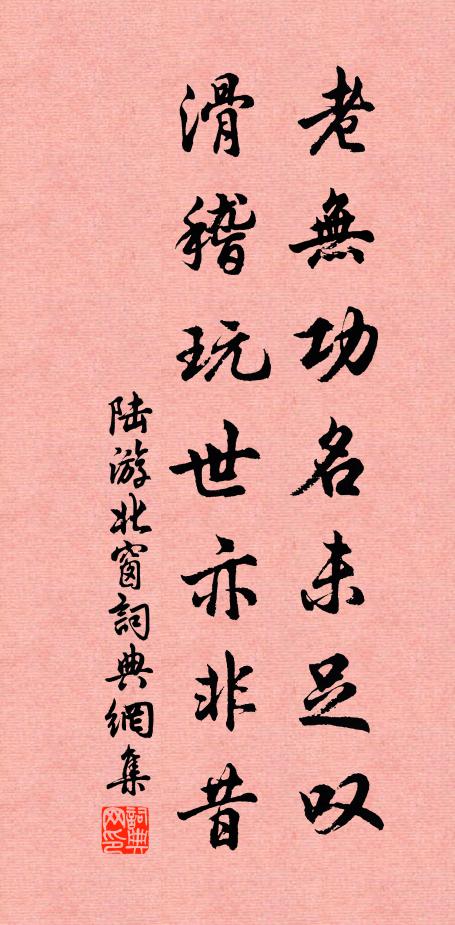 老無功名未足叹
滑稽玩世亦非昔
陆游北窗詞典網集
詞典网印